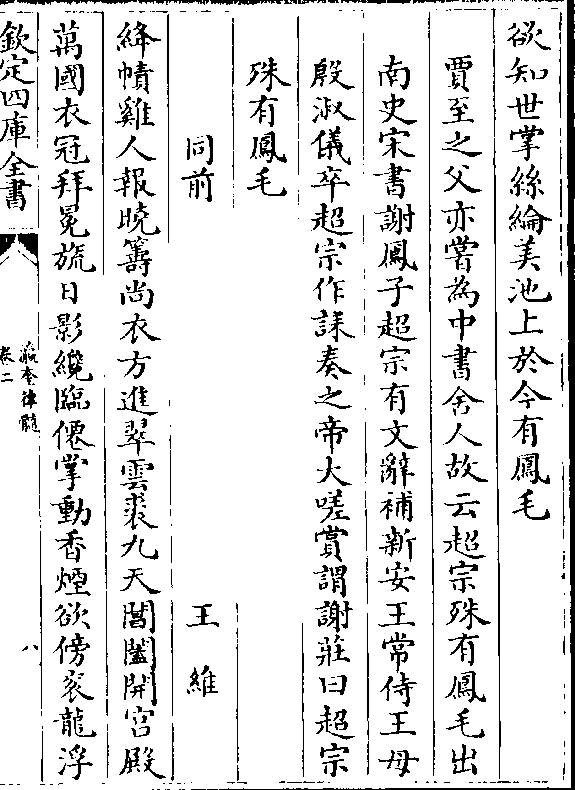 欲知世掌絲綸美池上於今有鳳毛
賈至之父亦嘗為中書舍人故云超宗殊有鳳毛出
南史宋書謝鳳子超宗有文辭補新安王常侍王母
殷淑儀卒超宗作誄奏之帝大嗟賞謂謝莊曰超宗
殊有鳳毛
同前 王維
絳幘雞人報曉籌尚衣方進翠雲裘九天閶闔開宮殿
萬國衣冠拜冕旒日影纔臨僊掌動香煙欲傍衮龍浮
欽定四庫全書
瀛奎律髓
卷二
八